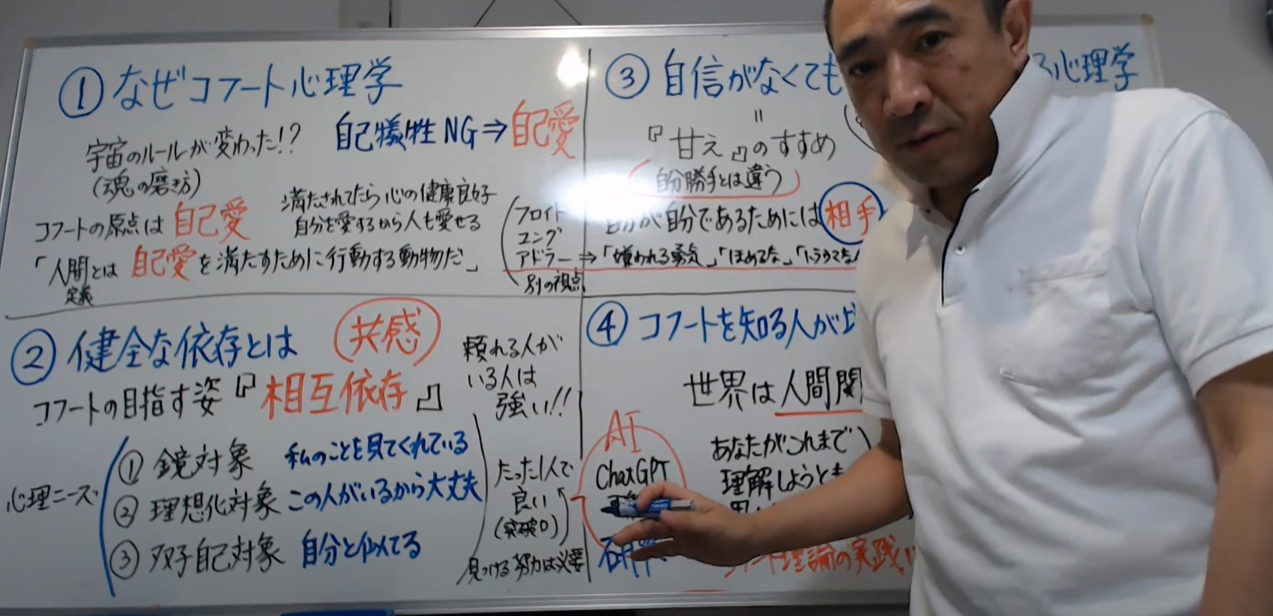 ① なぜコフート心理学
宇宙のルールが変わった!?
(魂の磨き方)
自己犠牲NG⇒自己愛
コフートの原点は 自己愛
満たされてたら心の健康良好
自分を愛するから人も愛せる
「人間とは 自己愛を満たすために行動する動物だ」
定義
フロイト
ユング
アドラー ⇒「嫌われる勇気」「ほめるな」
別の視点
② 健全な依存とは 共感
コフートの目指す姿『相互依存』
頼れる人が
いる人は
強い!!
心理ニーズ
① 鏡対象 私のことを見てくれている
② 理想化対象 この人がいるから大丈夫
③ 双子自己対象 自分と似てる
たった1人で
良い
(突破口)
見つける努力は必要
③ 自信がなくても る心理学
『甘え』のすすめ
自分勝手とは違う
自分が自分であるためには 相手
④ コフートを知る人が
世界は人間関
AI
ChatGPT
あなたがこれまで
理解しようとも
理論の実践